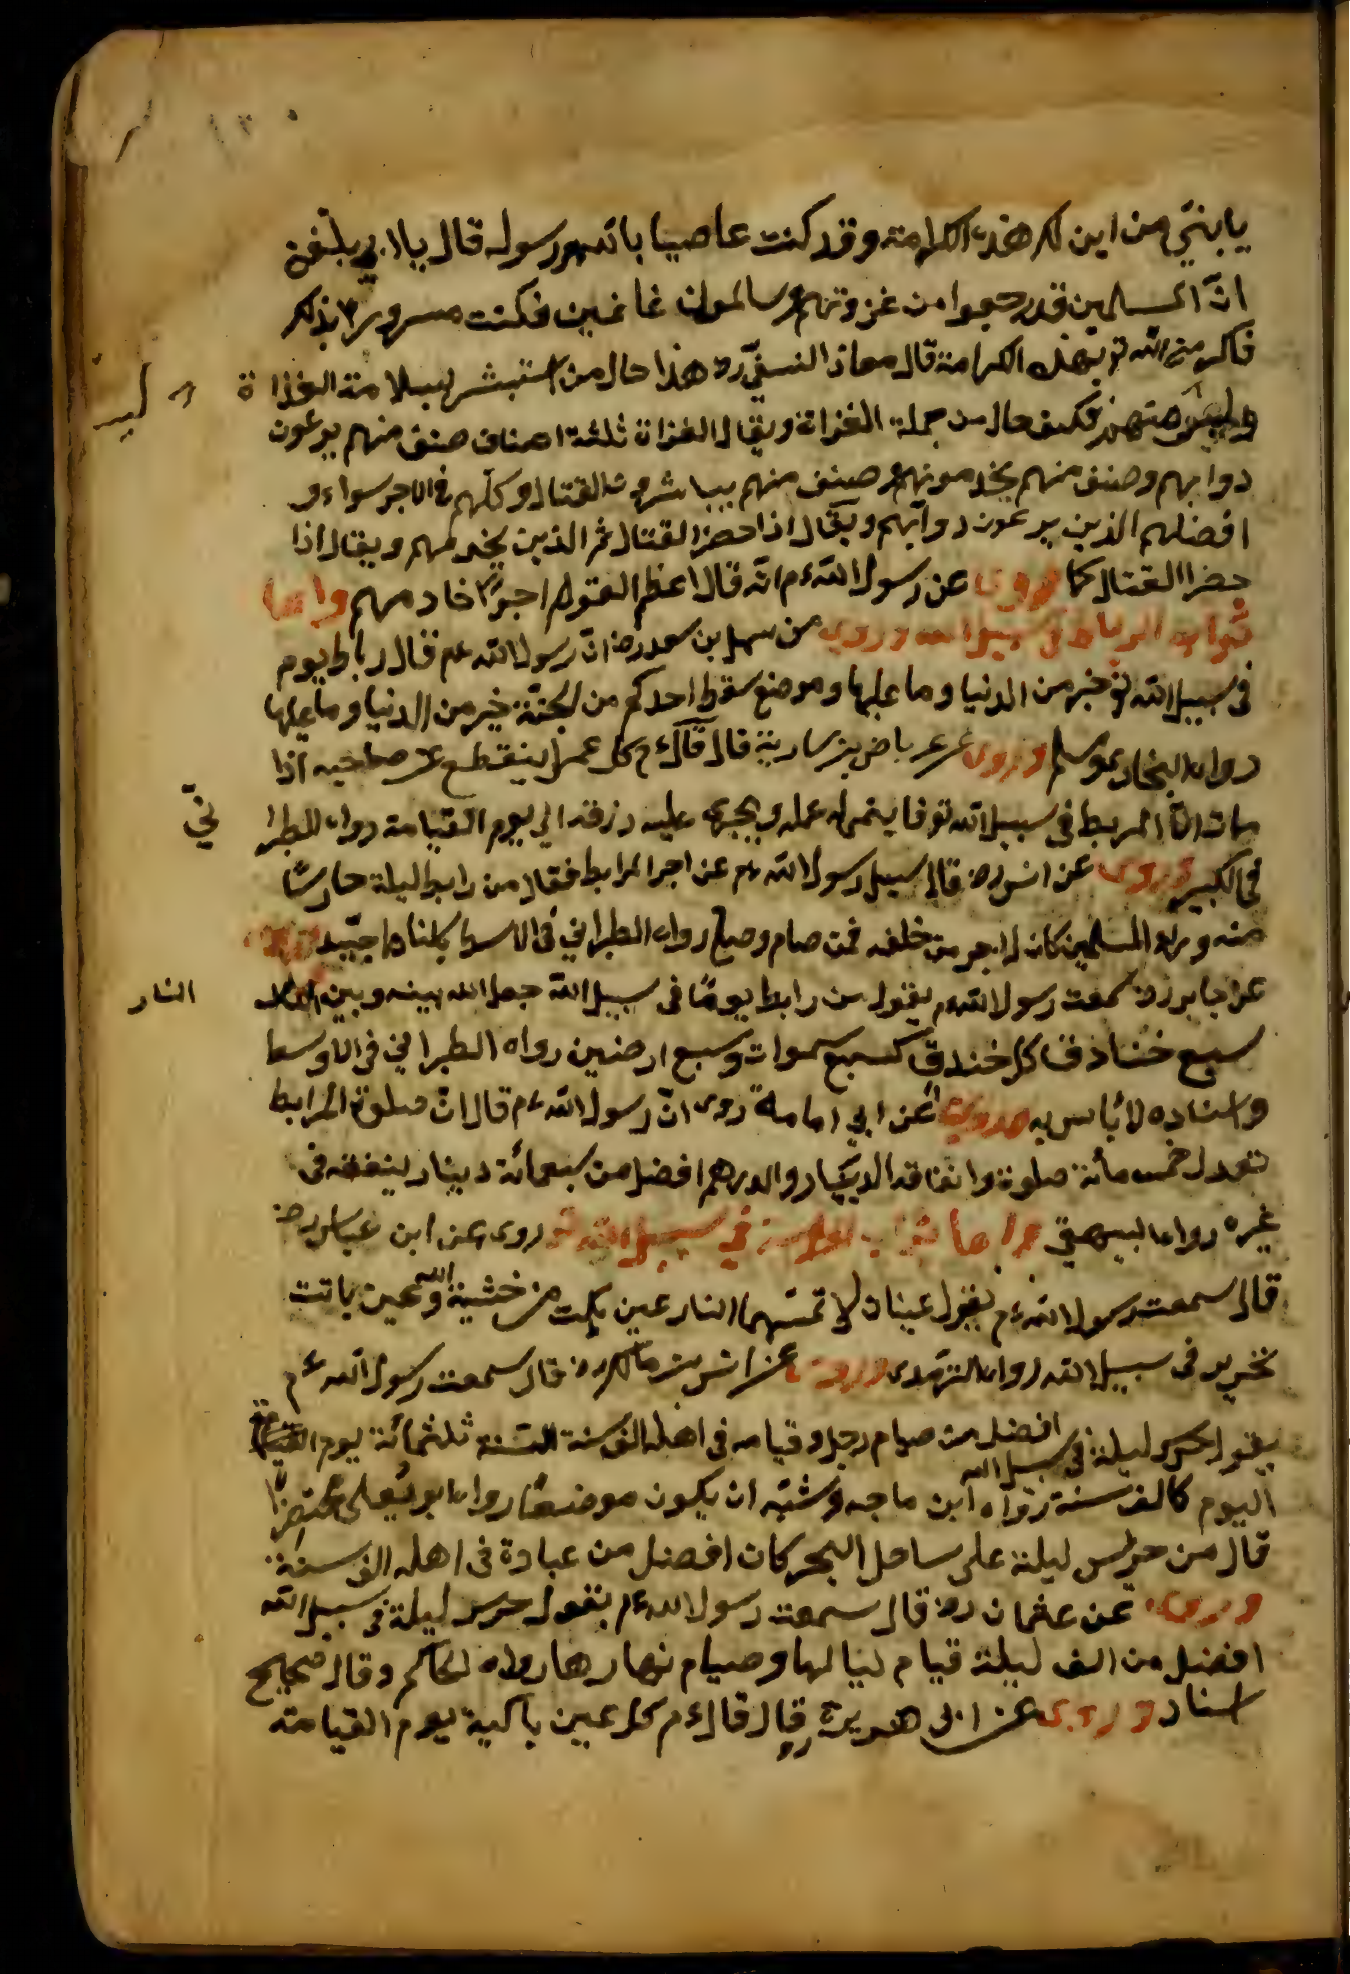 ١٣٠
يا بنيّ من اين لك هذه الكرامة وقد كنت عاصيا بالله ورسوله قال يا ابي بلغن
انّ المسلمين قد رجعوا من غزوتهم سالمون غانمين فكنت مسرورا بذلك
فاكرمني الله تع بهذه الكرامة قال معاذ النسفيّ ره هذا حال من استبشر بسلامة الغزاة
وليس منهم فكيف حال من جملة الغزاة ويقال الغزاة ثلثة اصناف صنف منهم يرعون
دوابهم وصنف منهم يخدمونهم وصنف منهم يباشرون القتال وكلهم في الاجر سواء و
افضلهم الذين يرعون دوابهم ويقال اذا حضر القتال ثم الذين يخدمهم ويقال اذا
حضر القتال كما روى عن رسول الله ءم انّه قال اعظم القوم اجرًا خادمهم واما
ثواب الرباط في سبيل الله وروى من سهل بن سعد رضـ انّ رسول الله عم قال رباط يوم
في سبيل الله تع خير من الدنيا وما عليها وموضع سوط احدكم من الجنّة خير من الدنيا وما عليها
رواه البخارى ومسلم وروى عن عرباض بن سارية قال قال ءم كل عمل ينقطع عن صاحبه اذا
مات الّا المربط في سبيل الله تع فا ينمى له عمله ويجرى عليه رزقه الى يوم القيامة رواه الطبرا
نيّ
في الكبير وروى عن انس رضـ قال سيل رسول الله ءم عن اجر المرابط فقال من رابط ليلة حارسًا
منه وراء المسلمين كان له اجر من خلفه ممن صام وصلى رواه الطبراني في الاوسط باسناد جيّد وروى
عن جابر رضـ سمعت رسول الله ءم يقول من رابط يومًا في سبيل الله جعل الله بينه وبين
النار
سبع خنادق كل خندق كسبع سموات وسبع ارضين رواه الطبراني في الاوسط
واسناده لا بأس به وروى عن ابي امامة روى انّ رسول الله ءم قال انّ صلوة المرابط
تعدل خمس مأئة صلوة وانفاقه الدينار والدرهم افضل من سبعمائة دينار ينفقه في
غيره رواه البيهقي واما ثواب الحراسة في سبيل الله تع روى عن ابن عباس رضـ
قال سمعت رسول الله ءم يقول عينان لا تمسّهما النار عين بكت من خشية الله وعين باتت
تحرس في سبيل الله رواه الترمذى وروى عن انس بن مالك رضـ قال سمعت رسول الله ءم
يقول حرس ليلة في سبيل الله افضل من صيام رجل وقيامه في اهله الف سنة السّنة ثلثمائة يوم
اليوم كالف سنة رواه ابن ماجه وشبّه ان يكون موضوعًا رواه ابو يعلى مختصرًا
قال من حرس ليلة على ساحل البحر كان افضل من عبادة في اهله الف سنة
وروى عن عثمان رضـ قال سمعت رسول الله ءم يقول حرس ليلة في سبيل الله
افضل من الف ليلة قيام ليالها وصيام نهارها رواه الحاكم وقال صحيح
اسناد وروى عن ابى هريرة رضـ قال قال ءم كل عين باكية يوم القيامة